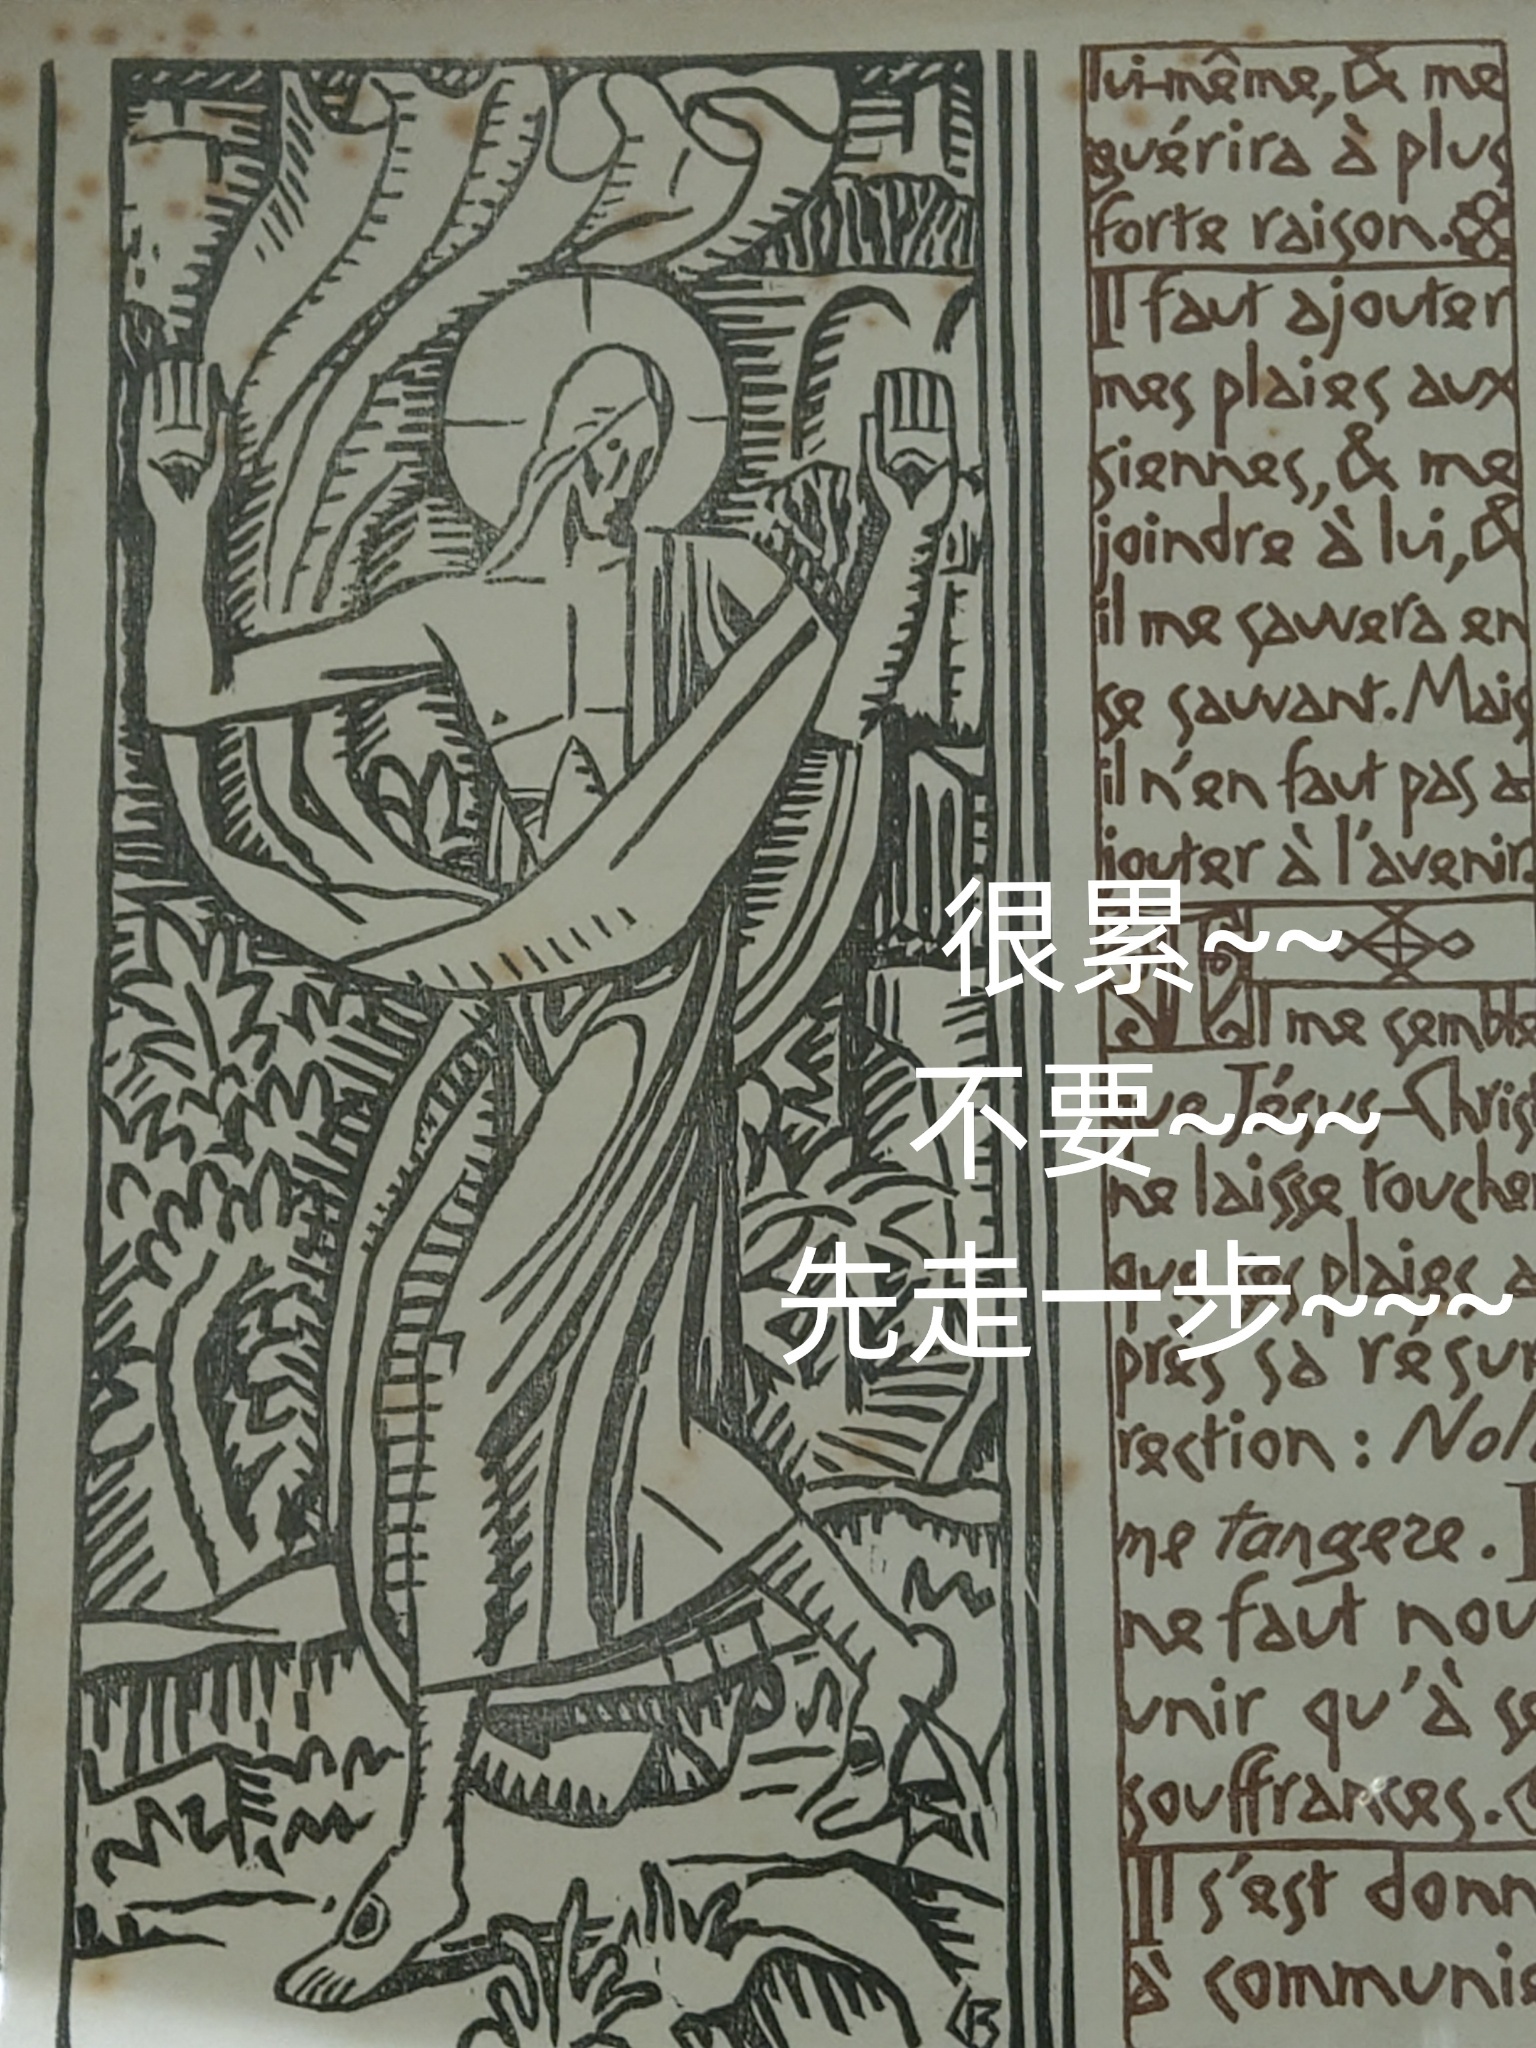 lui-même, & me
guérira à plus
forte raison.
Il faut ajouter
mes plaies aux
siennes, & me
joindre à lui, &
il me sauvera en
se sauvant. Mais
il n'en faut pas a-
jouter à l'avenir.
Il me semble
que Jésus-Chris
ne laisse touche
que ses plaies a
près sa résur
rection : Nol
me tangere. I
ne faut nou
unir qu'à se
souffrances.
Il s'est donn
à communie
很累~~
不要~~~
先走一步~~~